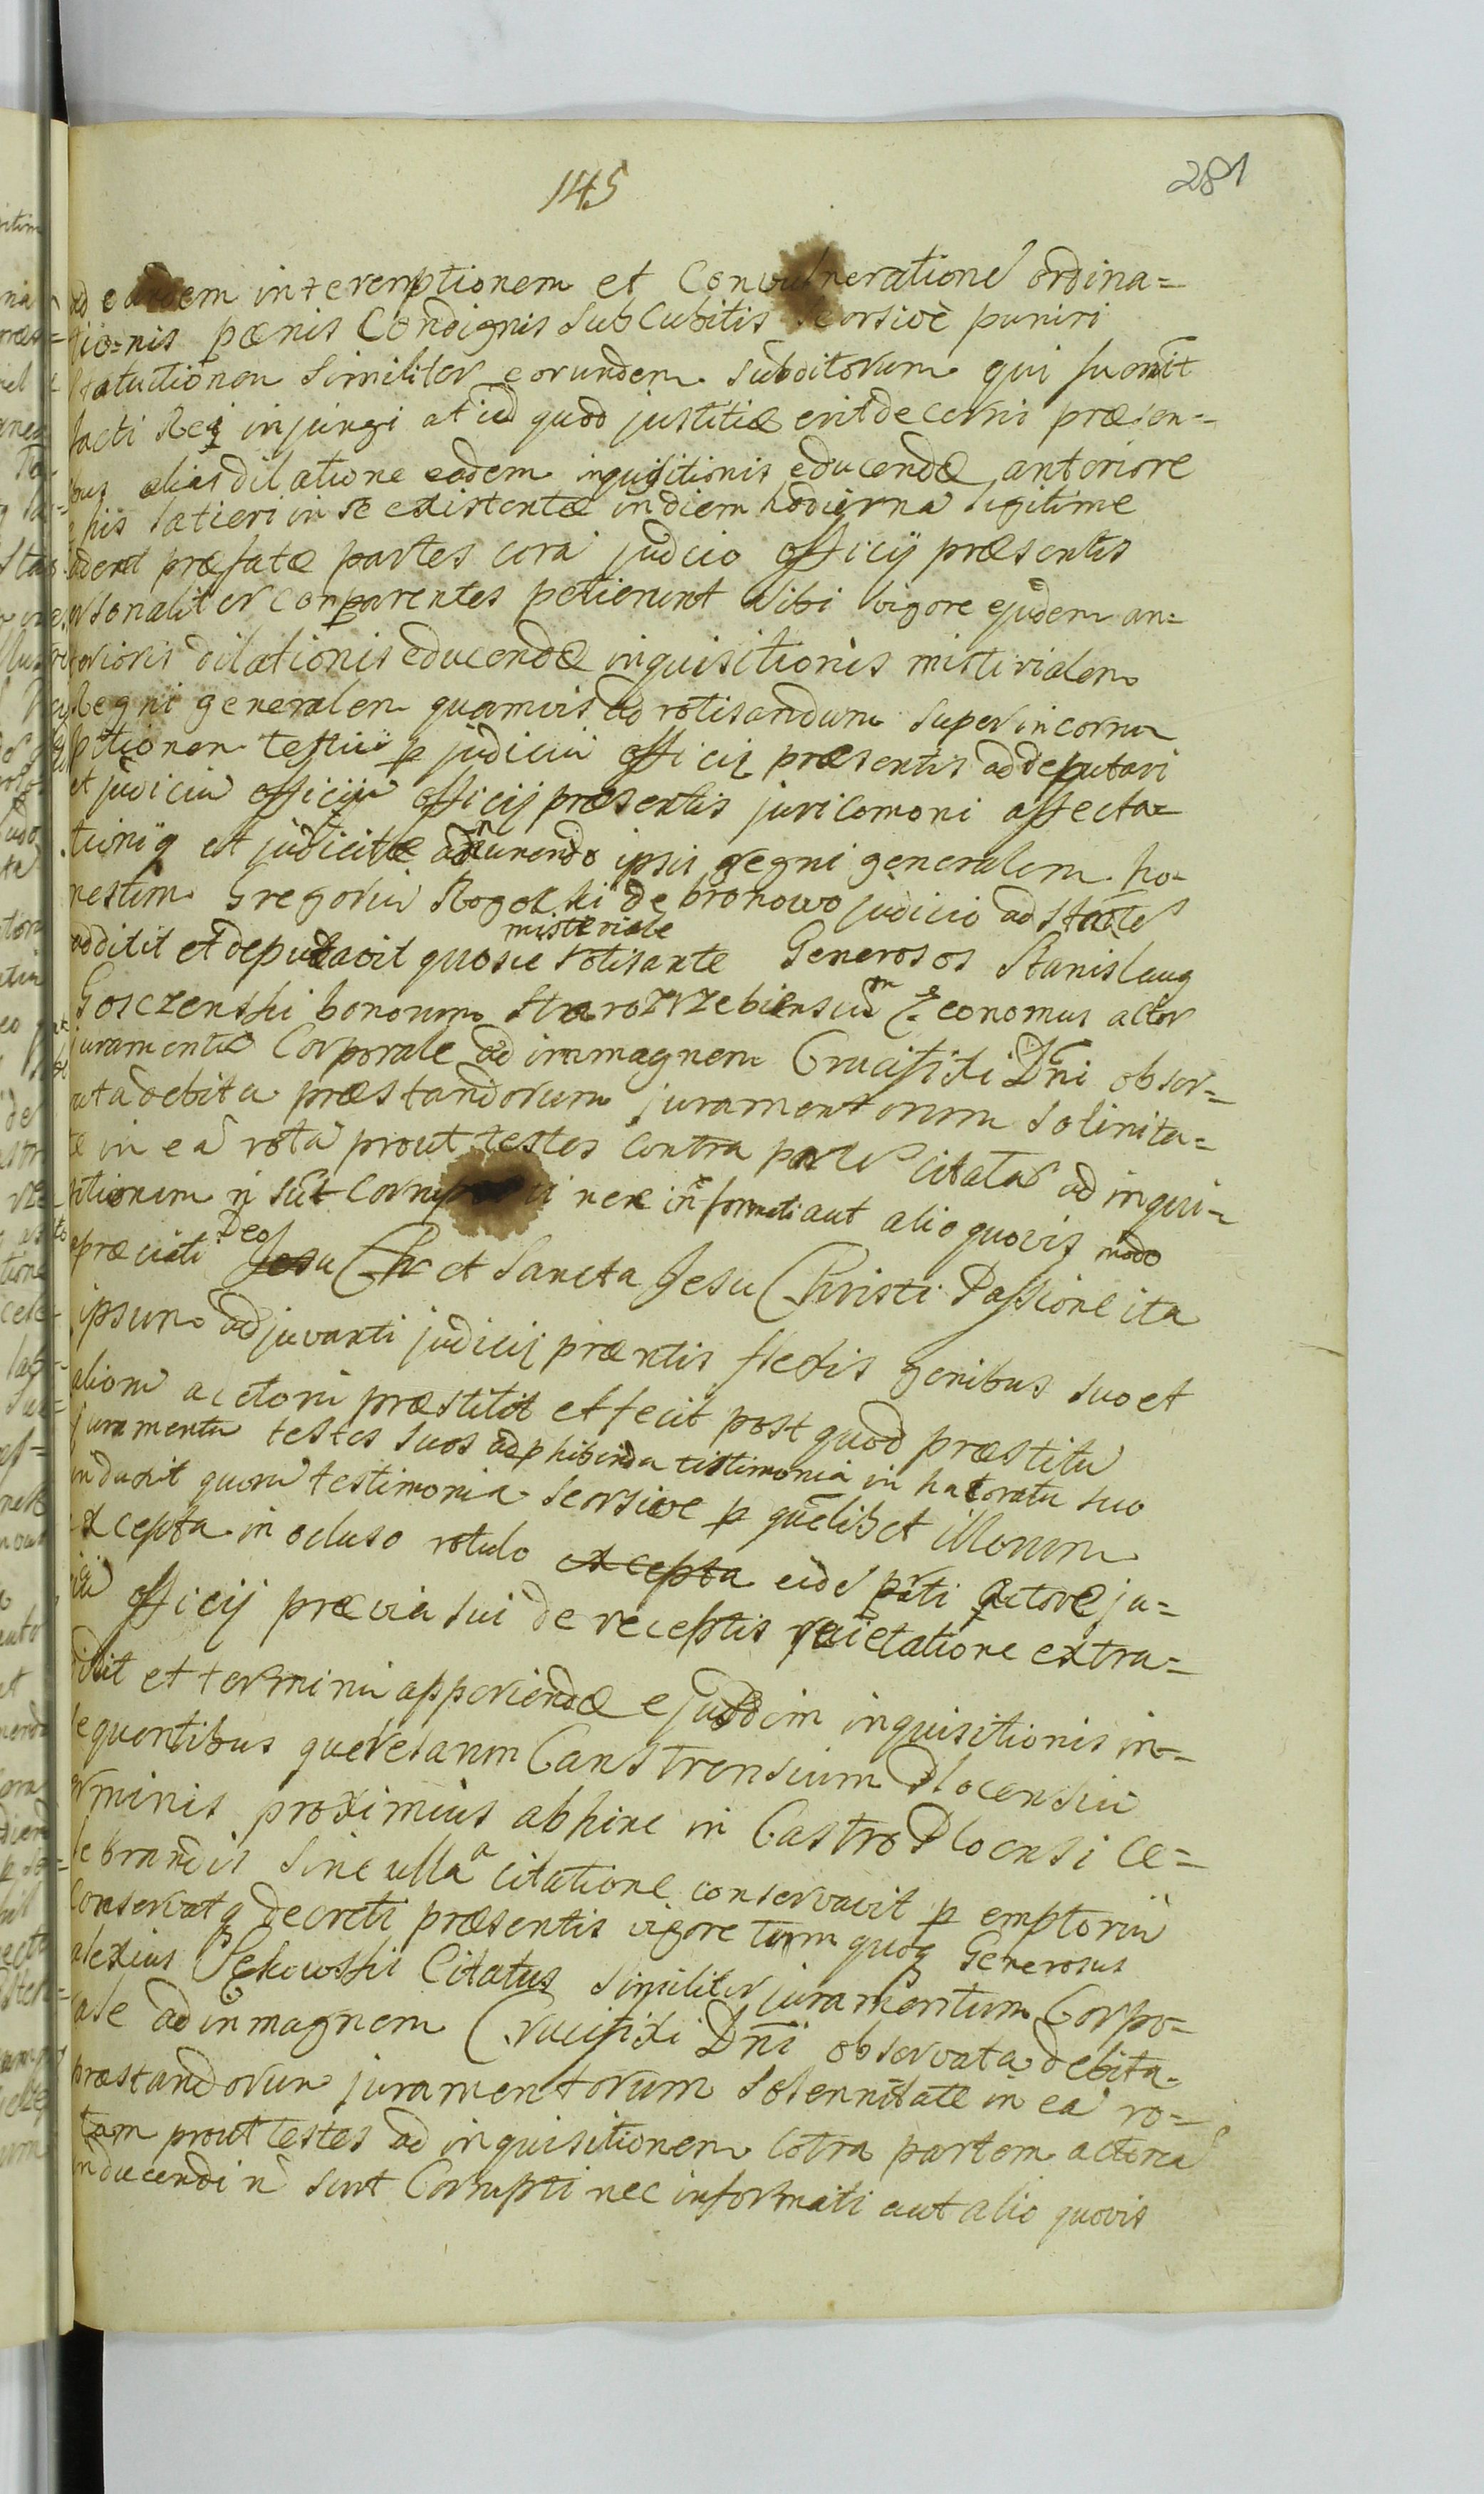 145
281
ad eandem interemptionem et Convulneratione ordina=
tio=nis pænis Condignis Subcubitis seorsive puniri
statuctionem Similiter eorundem subditorum qui
facti Rei injungi at id quod justitiæ erit decerni præsen=
bus alias dilatione eadem inquisitionis educendæ anteriore
his latieri in se existentæ in diem hodierna legitime
præfatæ partes cora judicio officij præsentis
rsonaliter comparentes petierunt sibi vigore ejudem an=
terioris dilationis educendæ inquisitionis misterialem
Regni generalem quamvis ad rotisandum super incorru
ptionem testiu p judiciu officij præsentis addeputari
et judiciu officiju officij præsentis juri comoni affecta=
tioniq et judicitæ adnuendo ipsis regni generalem ho-
nestum Gregoriu Rogolski de bronowo judicio ad state
addidit et deputavit quosue rotisante misteriale Generosos Stanislaug
Gosczenski bonorum Starozrzebiensium Œconomus actor
juramentu Corporale ad immagnem Crucifixi Dni obser=
uta debita præstandorum juramentorum solinita=
te in ea rota prout testes contra parte citata ad inqui=
sitionem n sut corrupti nek informati aut alio quovis modo
præviati Deo Jesu Chr et Sancta Jesu Christi Passione ita
ipsum adjuvanti judicij præntis flexis genibus suo et
aliom actoru præstitit et fecit post quod præstitu
juramentu testes suos ad phibenda testimonia in hac ratu suo
induxit quoru testimonia seorsive p quelibet illorum
excepta in ocluso rotulo excepta eide parti actoræ ju=
diciu officij prævia sui de receptis quietatione extra=
didit et terminu apperiendæ ejusdem inquisitionis in=
sequentibus querelarum Canstrensium Plocensiu
erminis proximius abhinc in Castro Plocensi ce=
lebrandis Sine ulla citatione conservavit p emptoriu
conservatq decreti præsentis vigore tum quoq Generosus
alexius Sękowski Citatus Similiter juramentum Corpo=
rale ad immagnem Crucifixi Dni observata debita
præstandorum juramentorum Solennitate in ea ro=
tam prout testes ad inquisitionem cotra partem actorea
inducendi n sunt Corrupti nec informati aut alio quovis